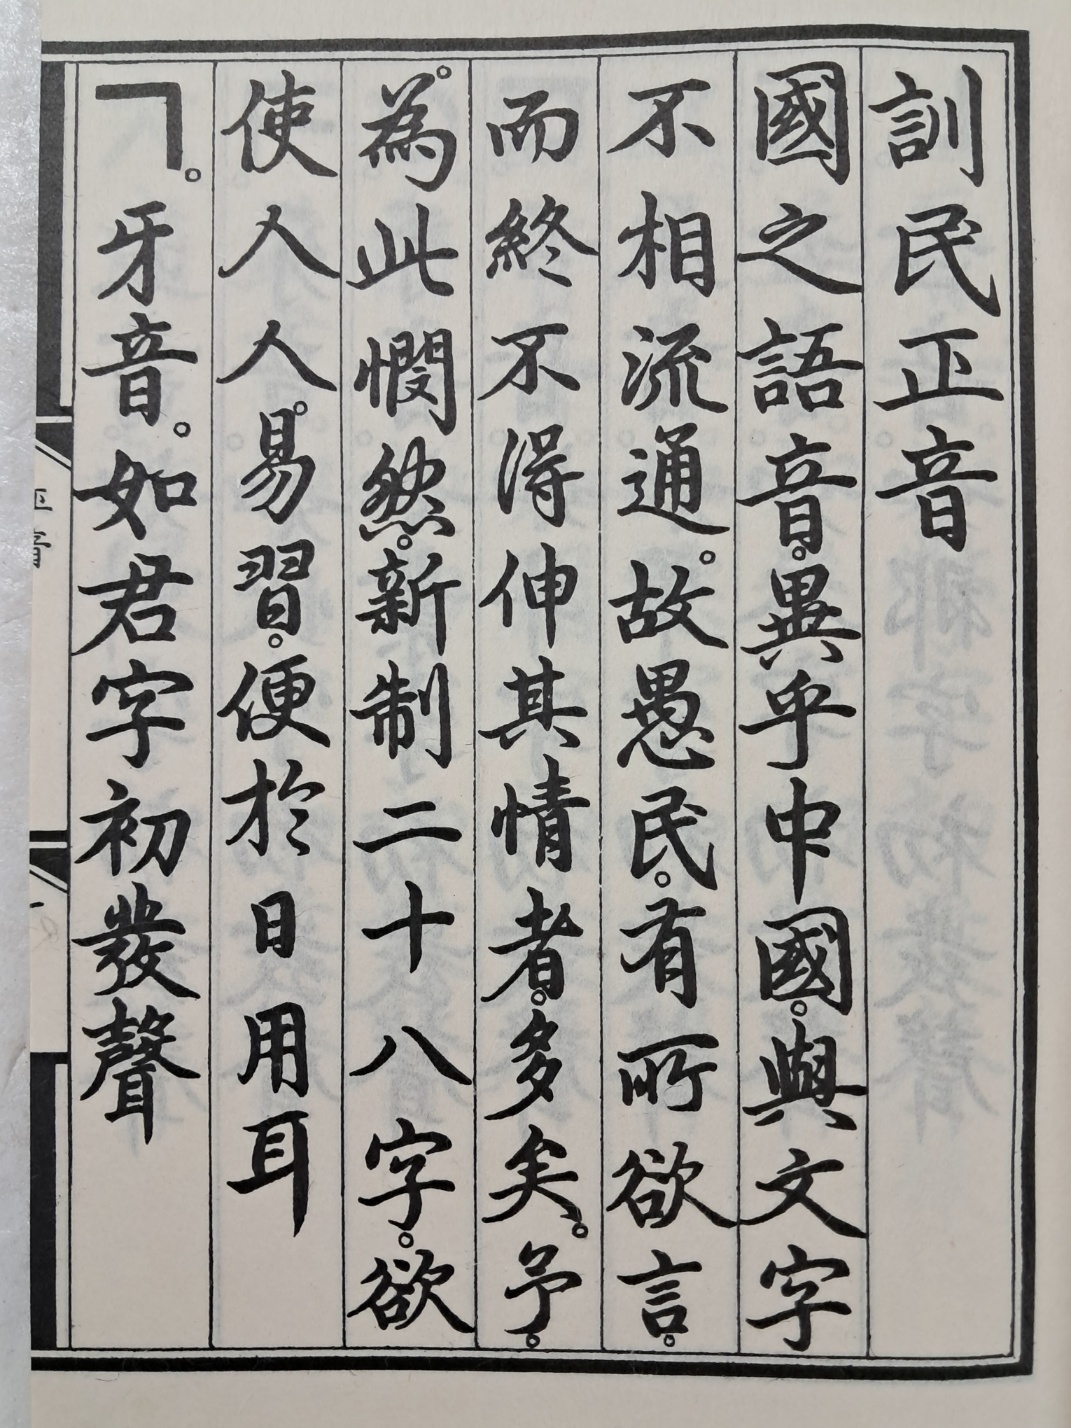 訓民正音
國之語音。異乎中國。與文字
不相流通。故愚民。有所欲言。
而終不得伸其情者。多矣。予。
為。此憫然。新制二十八字。欲
使人人。易習。便於日用耳
ㄱ。牙音。如君字初發聲
正音